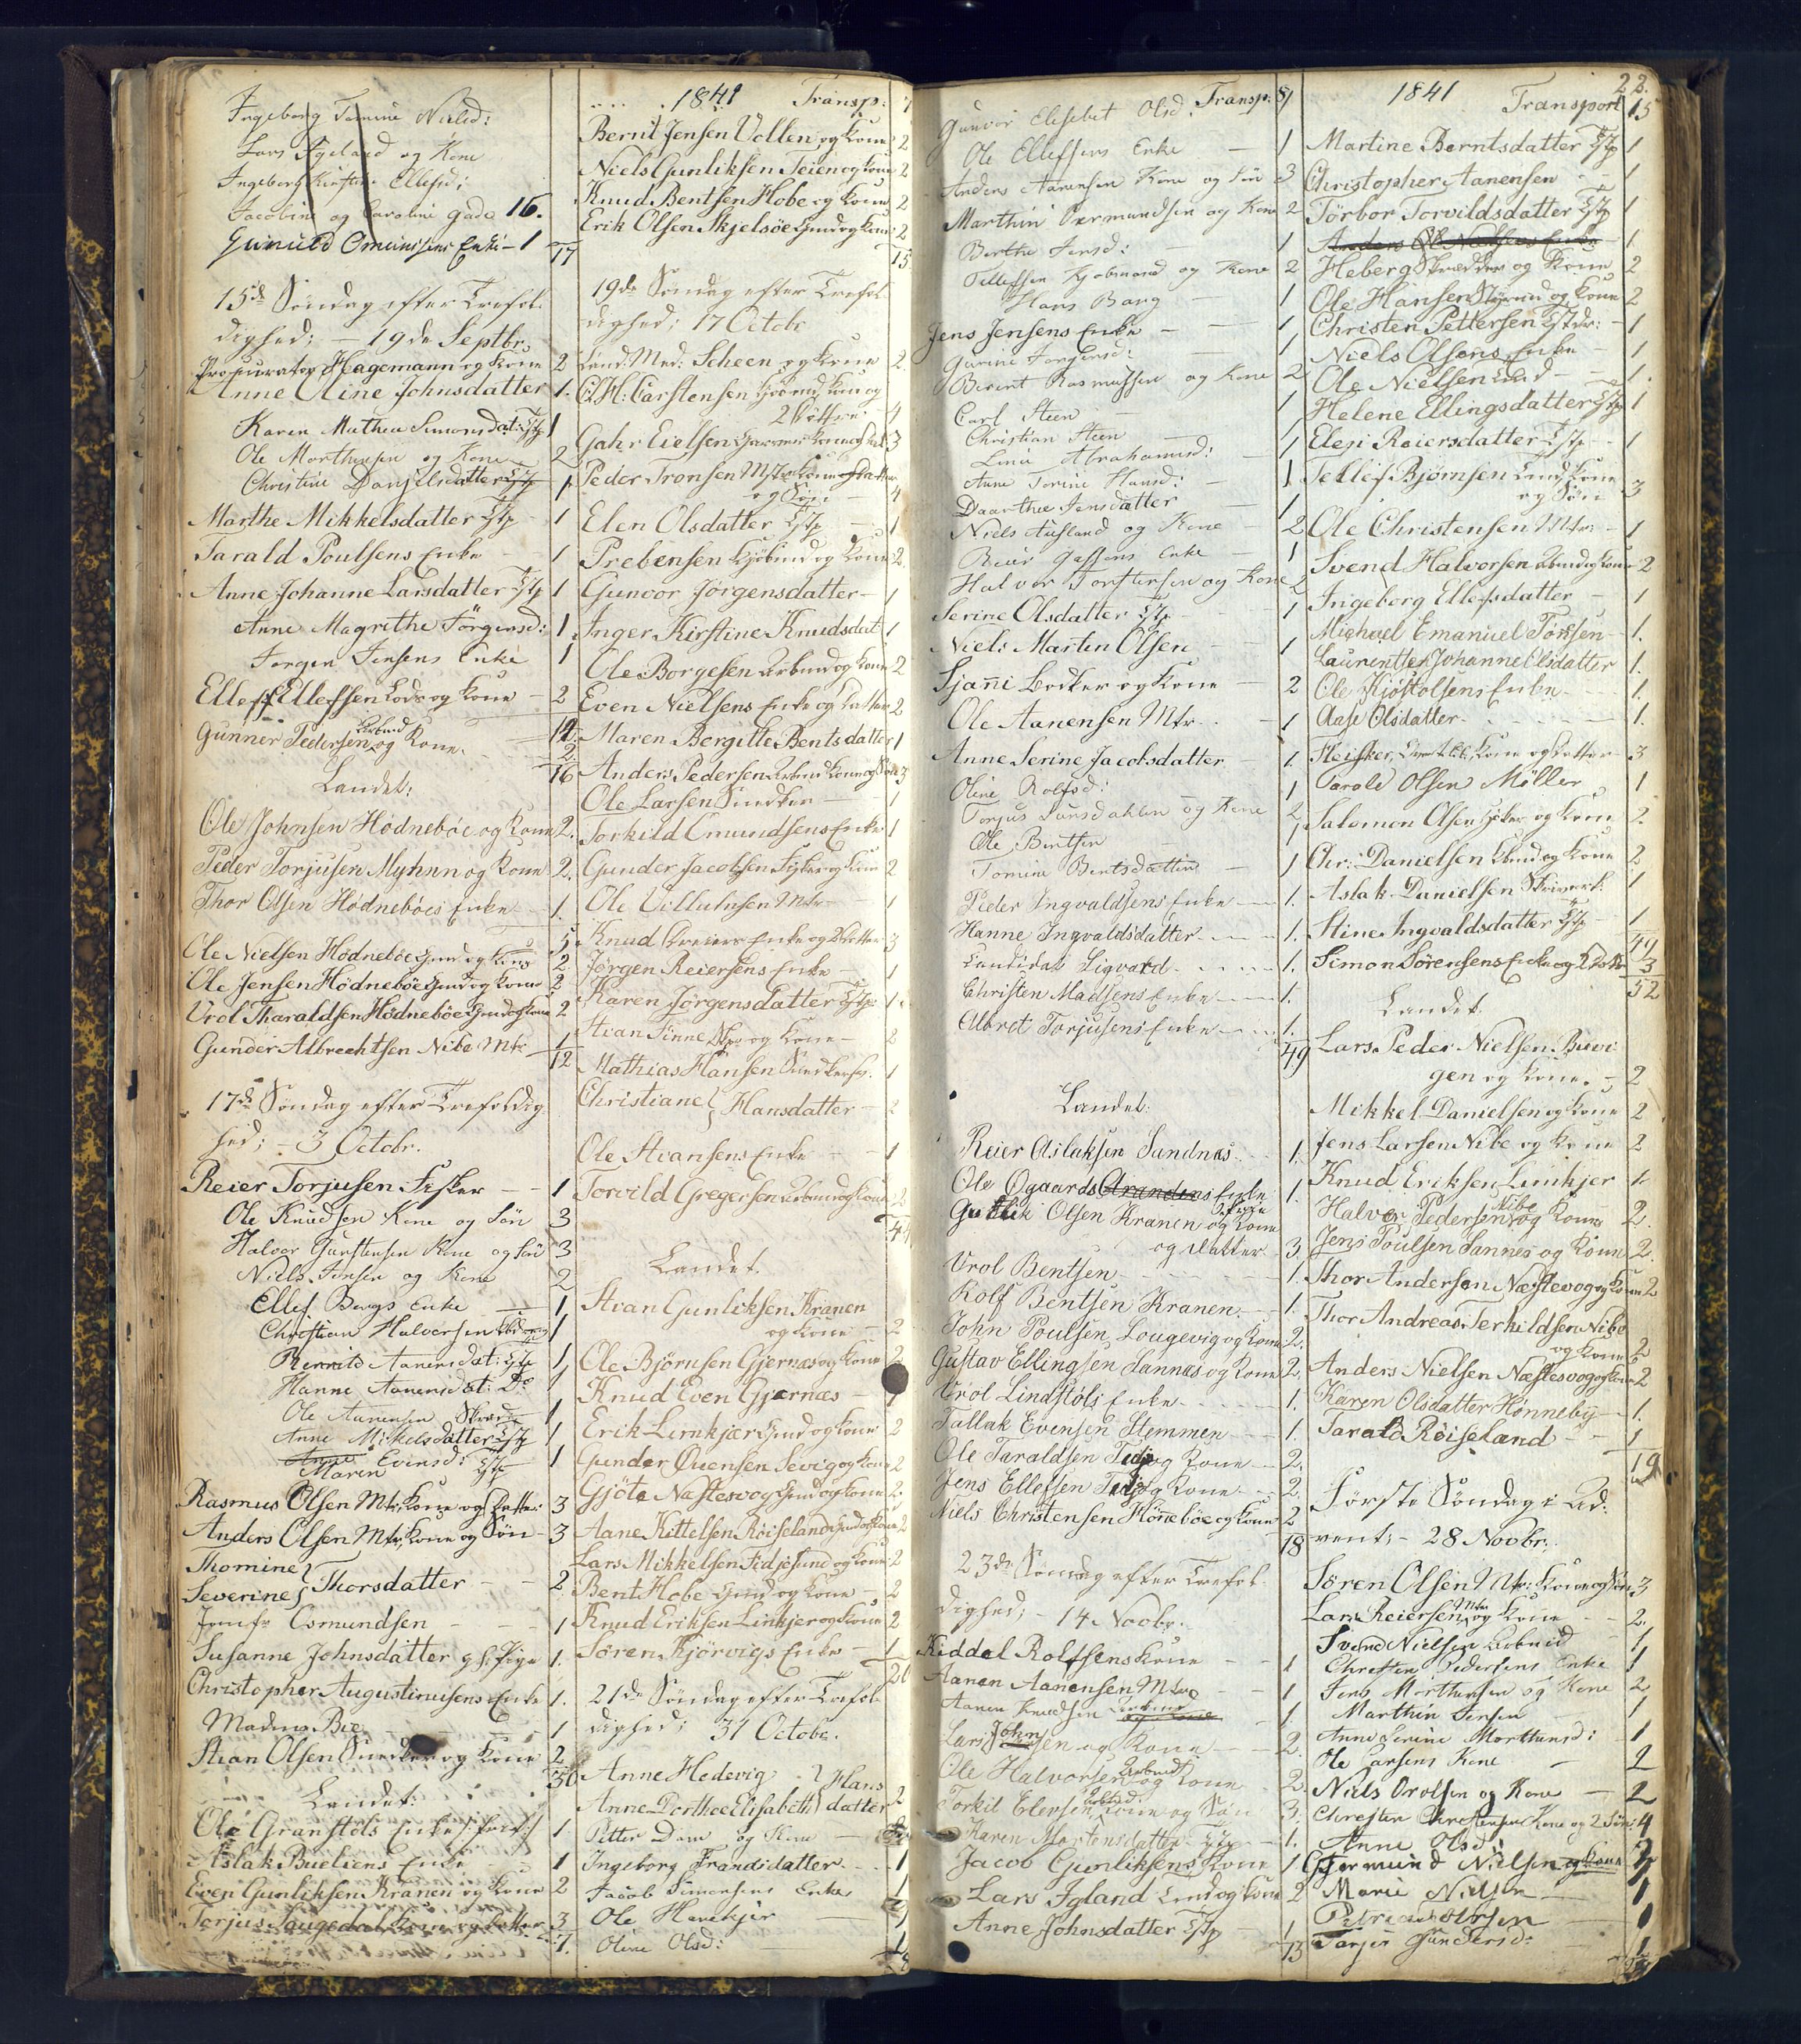 Ingeborg Tomine Nielsd:
Lars Igeland og Kone
Ingeborg Kirstine Ellefsd:
Jacobine og Caroline Gade 16.
Gunuld Omundsens Enke – 1
17
15de Søndag efter Trefol-
dighed; – 19de Septbr.
Procurator Hagemann og Kone 2
Anne Oline Johnsdatter 1.
Karen Mathea Simonsdat: Tjp 1
Ole Morthensen og Kone 2
Christine Danjelsdatter Tjp 1
Marthe Mikkelsdatter Tjp 1
Tarald Poulsens Enke 1
Anne Johanne Larsdatter Tjp 1
Anne Magrethe Jørgensd: 1
Jørgen Jensens Enke 1
Ellef Ellefsen Lods og Kone 2
Gunner Pedersen Arbmd og Kone 2
16
Landet:
Ole Johnsen Hødnebøe og Kone 2.
Peder Torjusen Myhren og Kone 2.
Thor Olsen Hødnebøes Enke 1.
5
Ole Nielsen Hødnebøe Gmd og Kone 2
Ole Jensen Hødnebøe Gmd og Kone 2
Vrol Tharaldsen Hødnebøe Gmd og Kone 2
Gunder Albrechtsen Nibe Mtr 1
12
17de Søndag efter Trefoldig
hed; – 3 Octobr.
Reier Torjusen Fisker – – 1
Ole Knudsen Kone og Søn 3
Halvor Gunstensen Kone og Søn 3
Niels Jensen og Kone 2
Ellef Bergs Enke 1
Christian Halvorsen 1
Aanensdat: Tjp 1
Hanne Aanensdat: Do 1
Ole Aanensen 1
Anne Mikelsdatter Tjp 1
Maren Evensd: Tjp 1
Rasmus Olsen Mtr, Kone og Datter 3
Anders Olsen Mtr, Kone og Søn 3
Thomine
Severine } Thorsdatter – – 2
Jomfr Osmundsen – – 1
Susanne Johnsdatter g. h. Pige 1.
Christopher Augustinusens Enke 1.
Madme Bie 1
Stian Olsen Snedker og Kone 2
30
Landet:
Ole Granstøls Enke 1
Aslak Bueliens Enke 1
Even Gunliksen Kranen og Kone 2
Torjus Laugedal, Kone og Datter 3
7.
1841 Transp: 7
Bernt Jensen Vollen og Kone 2
Niels Gunliksen Teien og Kone 2
Knud Bentsen Hobe og Kone 2
Erik Olsen Skjelsøe Gmd og Kone 2
15
19de Søndag efter Trefol-
dighed; 17 Octobr
Lnd: Med: Scheen og Kone 2.
C. H. Carstensen Kjøbmd, Kone og
2 Døttre 4
Gahr Eielsen 3
Peder Tronsen Mtr Kone Datter
og Søn 4
Elen Olsdatter Tjp 1
Prebensen Kjøbmd og Kone 2
Gunvor Jørgensdatter – 1
Inger Kirstine Knudsdat 1
Ole Borgesen Arbmd og Kone 2
Even Nielsens Enke og Datter 2
Maren Bergitte Bentsdatter 1
Anders Pedersen Arbmd Kone og Søn 3
Ole Larsen Snedker – 1
Torkild Omundsens Enke 1
Gunder Jacobsen Fisker og Kone 2
Ole Villumsen Mtr 1
Knud Dreiers Enke og 2 Døttre 3
Jørgen Reiersens Enke – 1
Karen Jørgensdatter Tjp 1.
Stian Finne og Kone – 2
Mathias Hansen Snedkersv. 1
Christiane } Hansdatter – 2
Ole Stiansens Enke – 1
Torvild Gregersen Arbmd og Kone 2
Landet.
Stian Gunliksen Kranen
og Kone 2
Ole Bjørnsen Gjernæs og Kone 2
Knud Even Gjernæs – 1
Erik Limkjær Gmd og Kone 2
Gunder Ouensen Sevig og Kone 2
Gjøte Næstesvog Gmd og Kone 2
Aane Kittelsen Røiseland Gmd og Kone 2
Lars Mikkelsen Fidjesund og Kone 2
Bent Hobe Gmd og Kone – 2
Knud Eriksen Limkjer og Kone 2
Søren Kjørvigs Enke – 1
20
21de Søndag efter Trefol-
dighed; 31 Octobr.
Anne Hedevig } Hans
Anne Dorthea Elisabeth } datter 2
Petter Dam og Kone
Ingeborg Frandsdatter 1
Jacob Simonsens Enke 1
Ole Hovekjer 1
Oline Olsd: 1
Transp: 8
Gunvor Elisebet Olsd. 1
Ole Ellefsens Enke – 1
Anders Aanensen Kone og Søn 3
Marthin Osmundsen og Kone 2
Berthe Jensd: 1
Tellefsen Kjøbmand og Kone 2
Hans Bang – 1
Jens Jensens Enke – – 1
Gurine Jørgensd: 1
Berent Rasmussen og Kone 2
Carl Steen – 1
Christian Steen 1
Lene Abrahamsd: 1
Anne Torine Hansd: 1
Daarthea Jensdatter 1
Niels Aasland og Kone 2
Reier Gassens Enke 1
Halvor Torstensen og Kone 2
Serine Olsdatter Tjp 1
Niels Martin Olsen 1
Sjanni Bødker og Kone 2
Ole Aanensen Mtr. 1
Anne Serine Jacobsdatter 1
Oline Rolfsd: 1
Torjus Sunsdahlen og Kone 2
Ole Bentsen 1
Tomine Bentsdatter 1
Peder Ingvaldsens Enke 1.
Hanne Ingvaldsdatter 1.
Candidat Sigvard 1.
Christen Madsens Enke 1.
Albret Torjusens Enke 1.
49
Landet:
Reier Aslaksen Sandnæs 1.
Ole Ogaards Enke 1.
Gunlik Olsen Kranen og Kone
og Datter 3.
Vrol Bentsen 1.
Rolf Bentsen Kranen 1.
John Poulsen Lougevig og Kone 2.
Gustav Ellingsen Sannæs og Kone 2.
Vrol Lindstøls Enke 1.
Tallak Evensen Stemmen 1.
Ole Taraldsen og Kone 2.
Jens Ellefsen og Kone 2.
Niels Christensen Hønebøe og Kone 2
18
23de Søndag efter Trefol-
dighed; – 14 Novbr.
Kiddel Rolfsens Kone 1
Aanen Aanensen Mtr 1
Aanen Knudsen 1
Lars Johnsen og Kone 2.
Ole Halvorsen Arbmd og Kone 2.
Torkil Elersen Arbmd, Kone og Søn 3.
Karen Mortensdatter Tjp 1.
Jacob Gunliksens Kone 1
Lars Igland Lmd og Kone 2
Anne Johnsdatter Tjp 1
13
22.
1841 Transport 15
Martine Berntsdatter Tjp 1
Christopher Aanensen 1
Tørbor Torvildsdatter Tjp 1
Anders Ol Nielsens Enke 1
Heberg Skrædder og Kone 2
Ole Hansen Styrmd og Kone 2
Christen Pettersen 1
Niels Olsens Enke 1
Ole Nielsen 1.
Helene Ellingsdatter Tjp 1
Elesi Reiersdatter Tjp 1
Tellef Bjørnsen Lmd, Kone
og Søn 3
Ole Christensen Mtr: 1
Svend Halvorsen Arbmd og Kone 2
Ingeborg Ellefsdatter 1
Michael Emanuel Tørssen 1.
Laurentze Johanne Olsdatter 1.
Ole Kjøstolsens Enke 1.
Aase Olsdatter 1.
Heisker, Kone og Datter 3
Tarald Olsen Møller 1
Salomon Olsen Høker og Kone 2.
Chr: Danielsen Arbmd og Kone 2
Aslak Danielsen 1
Stine Ingvaldsdatter Tjp 1
49
Simon Sørensens Enke og 2 Døttre 3
52
Landet.
Lars Peder Nielsen Buvi-
gen og Kone. 2
Mikkel Danielsen og Kone 2
Jens Larsen Nibe og Kone 2
Knud Eriksen Limkjer 1
Halvor Pedersen Nibe og Kone 2.
Jens Poulsen Sannes og Kone 2.
Thor Andersen Næstesvog og Kone 2
Thor Andreas Terkildsen Nibe
og Kone 2
Anders Nielsen Næstesvog og Kone 2
Karen Olsdatter Hønneby 1.
Tarald Røiseland 1
19
Første Søndag i Ad-
vent; – 28 Novbr.
Søren Olsen Mtr: Kone og Søn 3
Lars Reiersen Mtr og Kone 2.
Svend Nielsen Arbmd 1
Chresten Pedersens Enke 1
Jens Morthensen og Kone 2
Marthin Jensen 1
Anne Serine Morthensd: 1
Ole Larsens Kone 1
Niels Vrolsen og Kone 2
Chresten Chrestensen Kone og 2 Søn: 4
Anne Olsd:
Gjermund Nielsen og Kone
Marie Nielsen 1
Petrea Olsen 1
Torjer Gundersd: 1